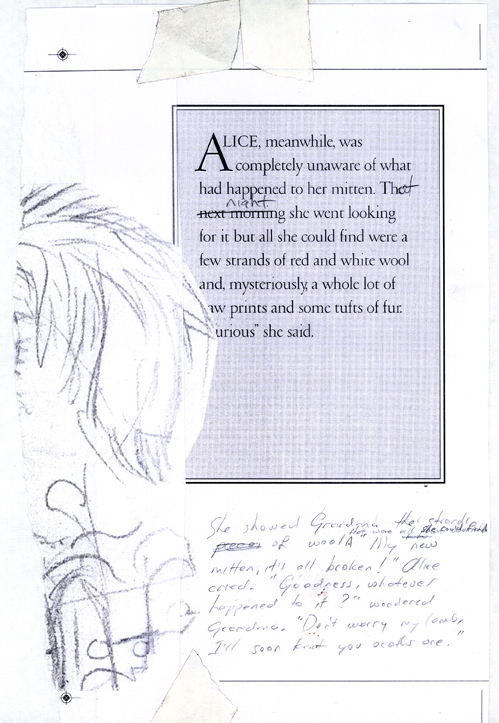 ALICE, meanwhile, was
completely unaware of what
had happened to her mitten. That
night.
next morning she went looking
for it but all she could find were a
few strands of red and white wool
and, mysteriously, a whole lot of
aw prints and some tufts of fur.
urious" she said.
She showed Grandma the strands
of wool. "My new
mitten, it's all broken!" Alice
cried. "Goodness, whatever
happened to it?" wondered
Grandma. "Don't worry my lamb,
I'll soon knit you another one."